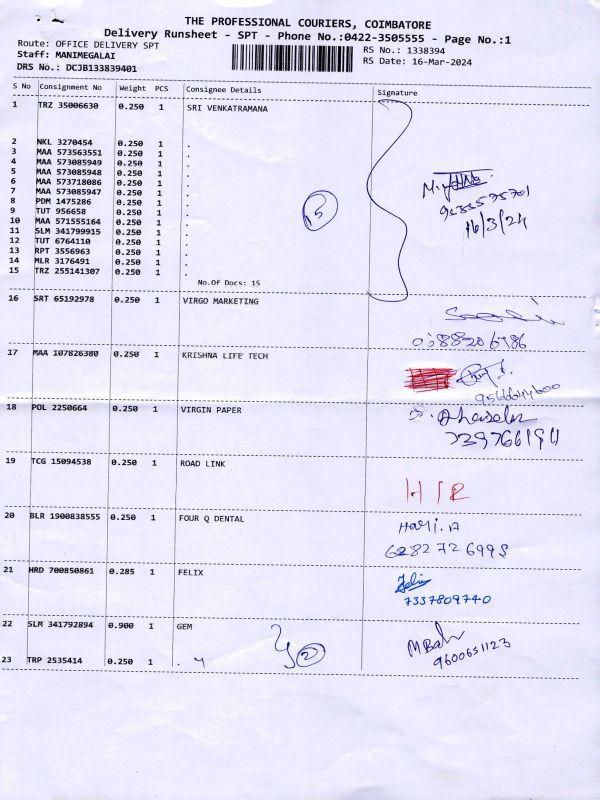 THE PROFESSIONAL COURIERS, COIMBATORE
Delivery Runsheet - SPT - Phone No.:0422-3505555 - Page No.:1
Route: OFFICE DELIVERY SPT
RS No.: 1338394
Staff: MANIMEGALAI
RS Date: 16-Mar-2024
DRS No.: DCJB133839401
S No Consignment No Weight PCS Consignee Details Signature
1 TRZ 35006630 0.250 1 SRI VENKATRAMANA
2 NKL 3270454 0.250 1 .
3 MAA 573563551 0.250 1 .
4 MAA 573085949 0.250 1 .
5 MAA 573085948 0.250 1 .
6 MAA 573718086 0.250 1 .
7 MAA 573085947 0.250 1 .
8 PDM 1475286 0.250 1 .
9 TUT 956658 0.250 1 .
10 MAA 571555164 0.250 1 .
11 SLM 341799915 0.250 1 .
12 TUT 6764110 0.250 1 .
13 RPT 3556963 0.250 1 .
14 MLR 3176491 0.250 1 .
15 TRZ 255141307 0.250 1 .
15
16/3/24
No.Of Docs: 15
16 SRT 65192978 0.250 1 VIRGO MARKETING
17 MAA 107826380 0.250 1 KRISHNA LIFE TECH
9566644600
18 POL 2250664 0.250 1 VIRGIN PAPER
19 TCG 15094538 0.250 1 ROAD LINK
20 BLR 1900838555 0.250 1 FOUR Q DENTAL
Hari. A
6282726995
21 HRD 700850861 0.285 1 FELIX
Felix
7337809740
22 SLM 341792894 0.900 1 GEM
2
9600651123
23 TRP 2535414 0.250 1 .